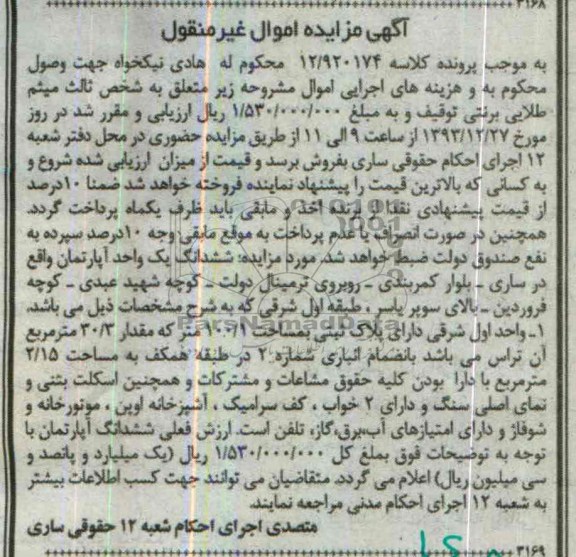 ۳۱۶۸
آگهی مزایده اموال غیرمنقول
به موجب پرونده کلاسه ۱۲/۹۲۰۱۷۴ محکوم له هادی نیکخواه جهت وصول
محکوم به و هزینه های اجرایی اموال مشروحه زیر متعلق به شخص ثالث میثم
طلایی برنتی توقیف و به مبلغ ۱/۵۳۰/۰۰۰/۰۰۰ ریال ارزیابی و مقرر شد در روز
مورخ ۱۳۹۳/۱۲/۲۷ از ساعت ۹ الی ۱۱ از طریق مزایده حضوری در محل دفتر شعبه
۱۲ اجرای احکام حقوقی ساری بفروش برسد و قیمت از میزان ارزیابی شده شروع و
به کسانی که بالاترین قیمت را پیشنهاد نماینده فروخته خواهد شد ضمنا ۱۰درصد
از قیمت پیشنهادی نقدا از برنده اخذ و مابقی باید ظرف یکماه پرداخت گردد.
همچنین در صورت انصراف یا عدم پرداخت به موقع مابقی وجه ۱۰درصد سپرده به
نفع صندوق دولت ضبط خواهد شد. مورد مزایده: ششدانگ یک واحد آپارتمان واقع
در ساری ـ بلوار کمربندی ـ روبروی ترمینال دولت ـ کوچه شهید عبدی ـ کوچه
فروردین ـ بالای سوپر یاسر ، طبقه اول شرقی که به شرح مشخصات ذیل می باشد.
۱ـ واحد اول شرقی دارای پلاک ثبتی بمساحت ۱۰۰/۱۰ متر که مقدار ۳۰/۳ مترمربع
آن تراس می باشد بانضمام انباری شماره ۲ در طبقه همکف به مساحت ۲/۱۵
مترمربع با دارا بودن کلیه حقوق مشاعات و مشترکات و همچنین اسکلت بتنی و
نمای اصلی سنگ و دارای ۲ خواب ، کف سرامیک ، آشپزخانه اوپن ، موتورخانه و
شوفاژ و دارای امتیازهای آب،برق،گاز، تلفن است. ارزش فعلی ششدانگ آپارتمان با
توجه به توضیحات فوق بمبلغ کل ۱/۵۳۰/۰۰۰/۰۰۰ ریال (یک میلیارد و پانصد و
سی میلیون ریال) اعلام می گردد. متقاضیان می توانند جهت کسب اطلاعات بیشتر
به شعبه ۱۲ اجرای احکام مدنی مراجعه نمایند.
متصدی اجرای احکام شعبه ۱۲ حقوقی ساری
۳۱۶۹
ParsNamadData